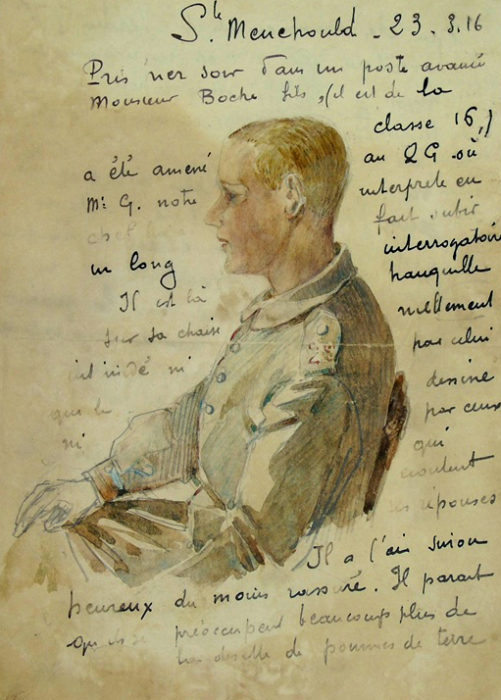 Ste Menehould - 23. 3. 16
Pris hier soir dans un poste avancé
Monsieur Boche fils, (il est de la
classe 16,)
a été amené au QG où
Mr G. notre interprete en
chef fait subir
un long interrogatoire
Il est là tranquille
sur sa chaise nullement
intimidé ni par celui
que le dessine
ni par ceux
qui
écoutent
ses réponses
Il a l'air sinon
heureux du moins rassuré. Il parait
préoccupent beaucoup plus de
la disette de pommes de terre